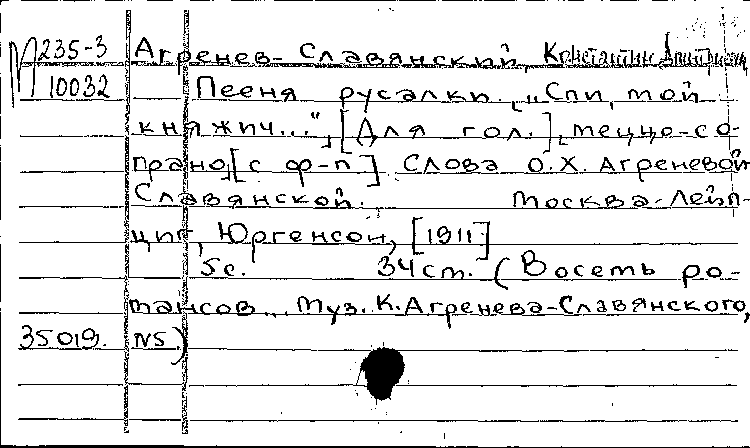 М 235-3 Агренев-Славянский, Константин Дмитриев
10032 Песня русалки. „Спи, мой
княжич...", [Для гол.], меццо-со-
прано, [с ф-п] Слова О.Х. Агреневой
Славянской. Москва-Лейп-
циг, Юргенсон, [1911]
5с. 34 cm. (Восемь ро-
мансов... Муз. К. Агренева-Славянского,
35019. N5.)